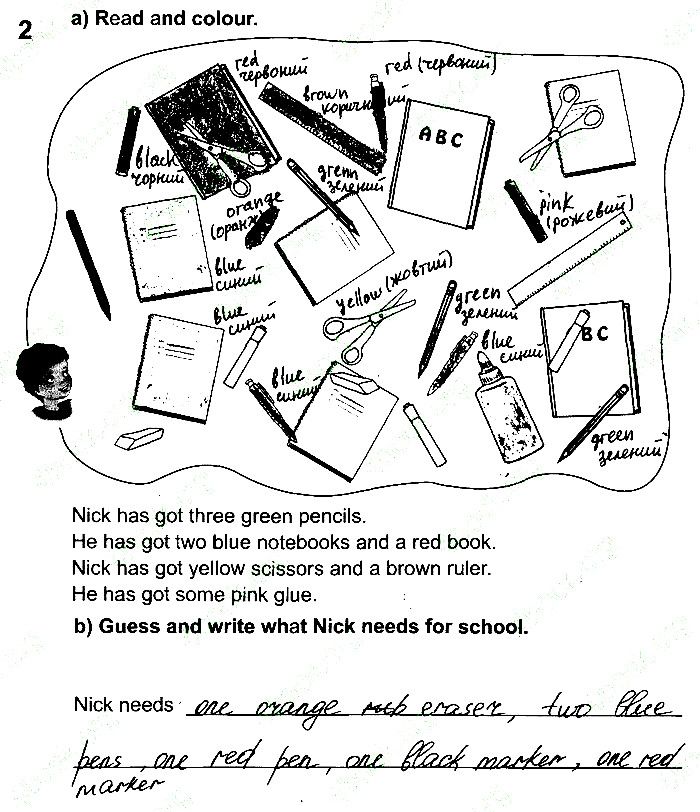 2
a) Read and colour.
red
червоний
red (червоний)
brown
коричневий
A B C
black
чорний
green
зелений
orange
pink
(рожевий)
blue
синий
yellow (жовтий)
blue
синий
green
зелений
blue
синий
BC
blue
синий
green
зелений
Nick has got three green pencils.
He has got two blue notebooks and a red book.
Nick has got yellow scissors and a brown ruler.
He has got some pink glue.
b) Guess and write what Nick needs for school.
Nick needs one orange eraser, two blue
pens, one red pen, one black marker, one red
marker